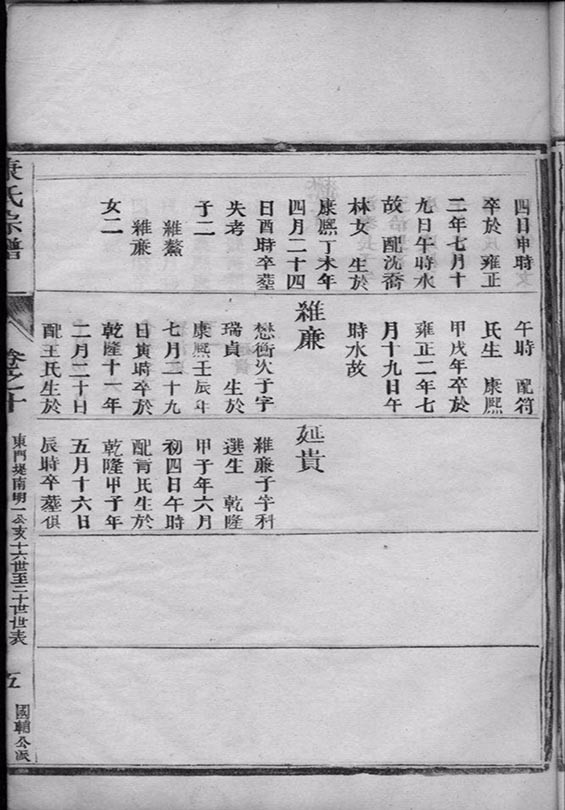 四日申時
卒於雍正
二年七月十
九日午時水
故 配沈喬
林女 生於
康熙丁未年
四月二十四
日酉時卒墓
失考
子二
維鰲
維廉
女二
午時 配符
氏生 康熙
甲戌年卒於
雍正二年七
月十九日午
時水故
維廉
懋衡次子字
瑞貞 生於
康熙壬辰年
七月二十九
日寅時卒於
乾隆十一年
二月二十日
配王氏生於
延貴
維廉子字科
選生 乾隆
甲子年六月
初四日午時
配胥氏生於
乾隆甲子年
五月十六日
辰時卒墓俱
氏宗譜
卷之十
東門堤南明一公亥十六世至二十世世表
五
國輔公派